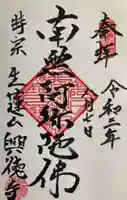 奉拝
令和二年
八月七日
南無阿弥陀佛
時宗
興徳寺